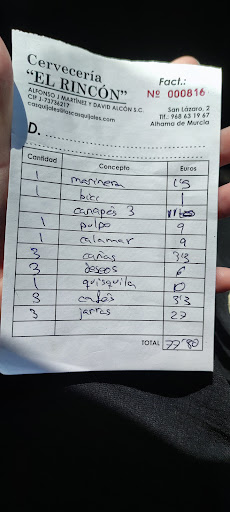 Cervecería
"EL RINCÓN"
ALFONSO J MARTÍNEZ Y DAVID ALCÓN S.C.
CIF J-73736217
casquijales@loscasquijales.com
Fact.:
Nº 000816
San Lázaro, 2
Tlf.: 968 63 19 67
Alhama de Murcia
D.
Cantidad Concepto Euros
1 marinera
1 bici 1
canapés 3
1 pulpo 9
1 calamar 9
3 cañas
3 6
1 quisquilla
3 cafés 3'3
3 jarras 27
TOTAL 77'80